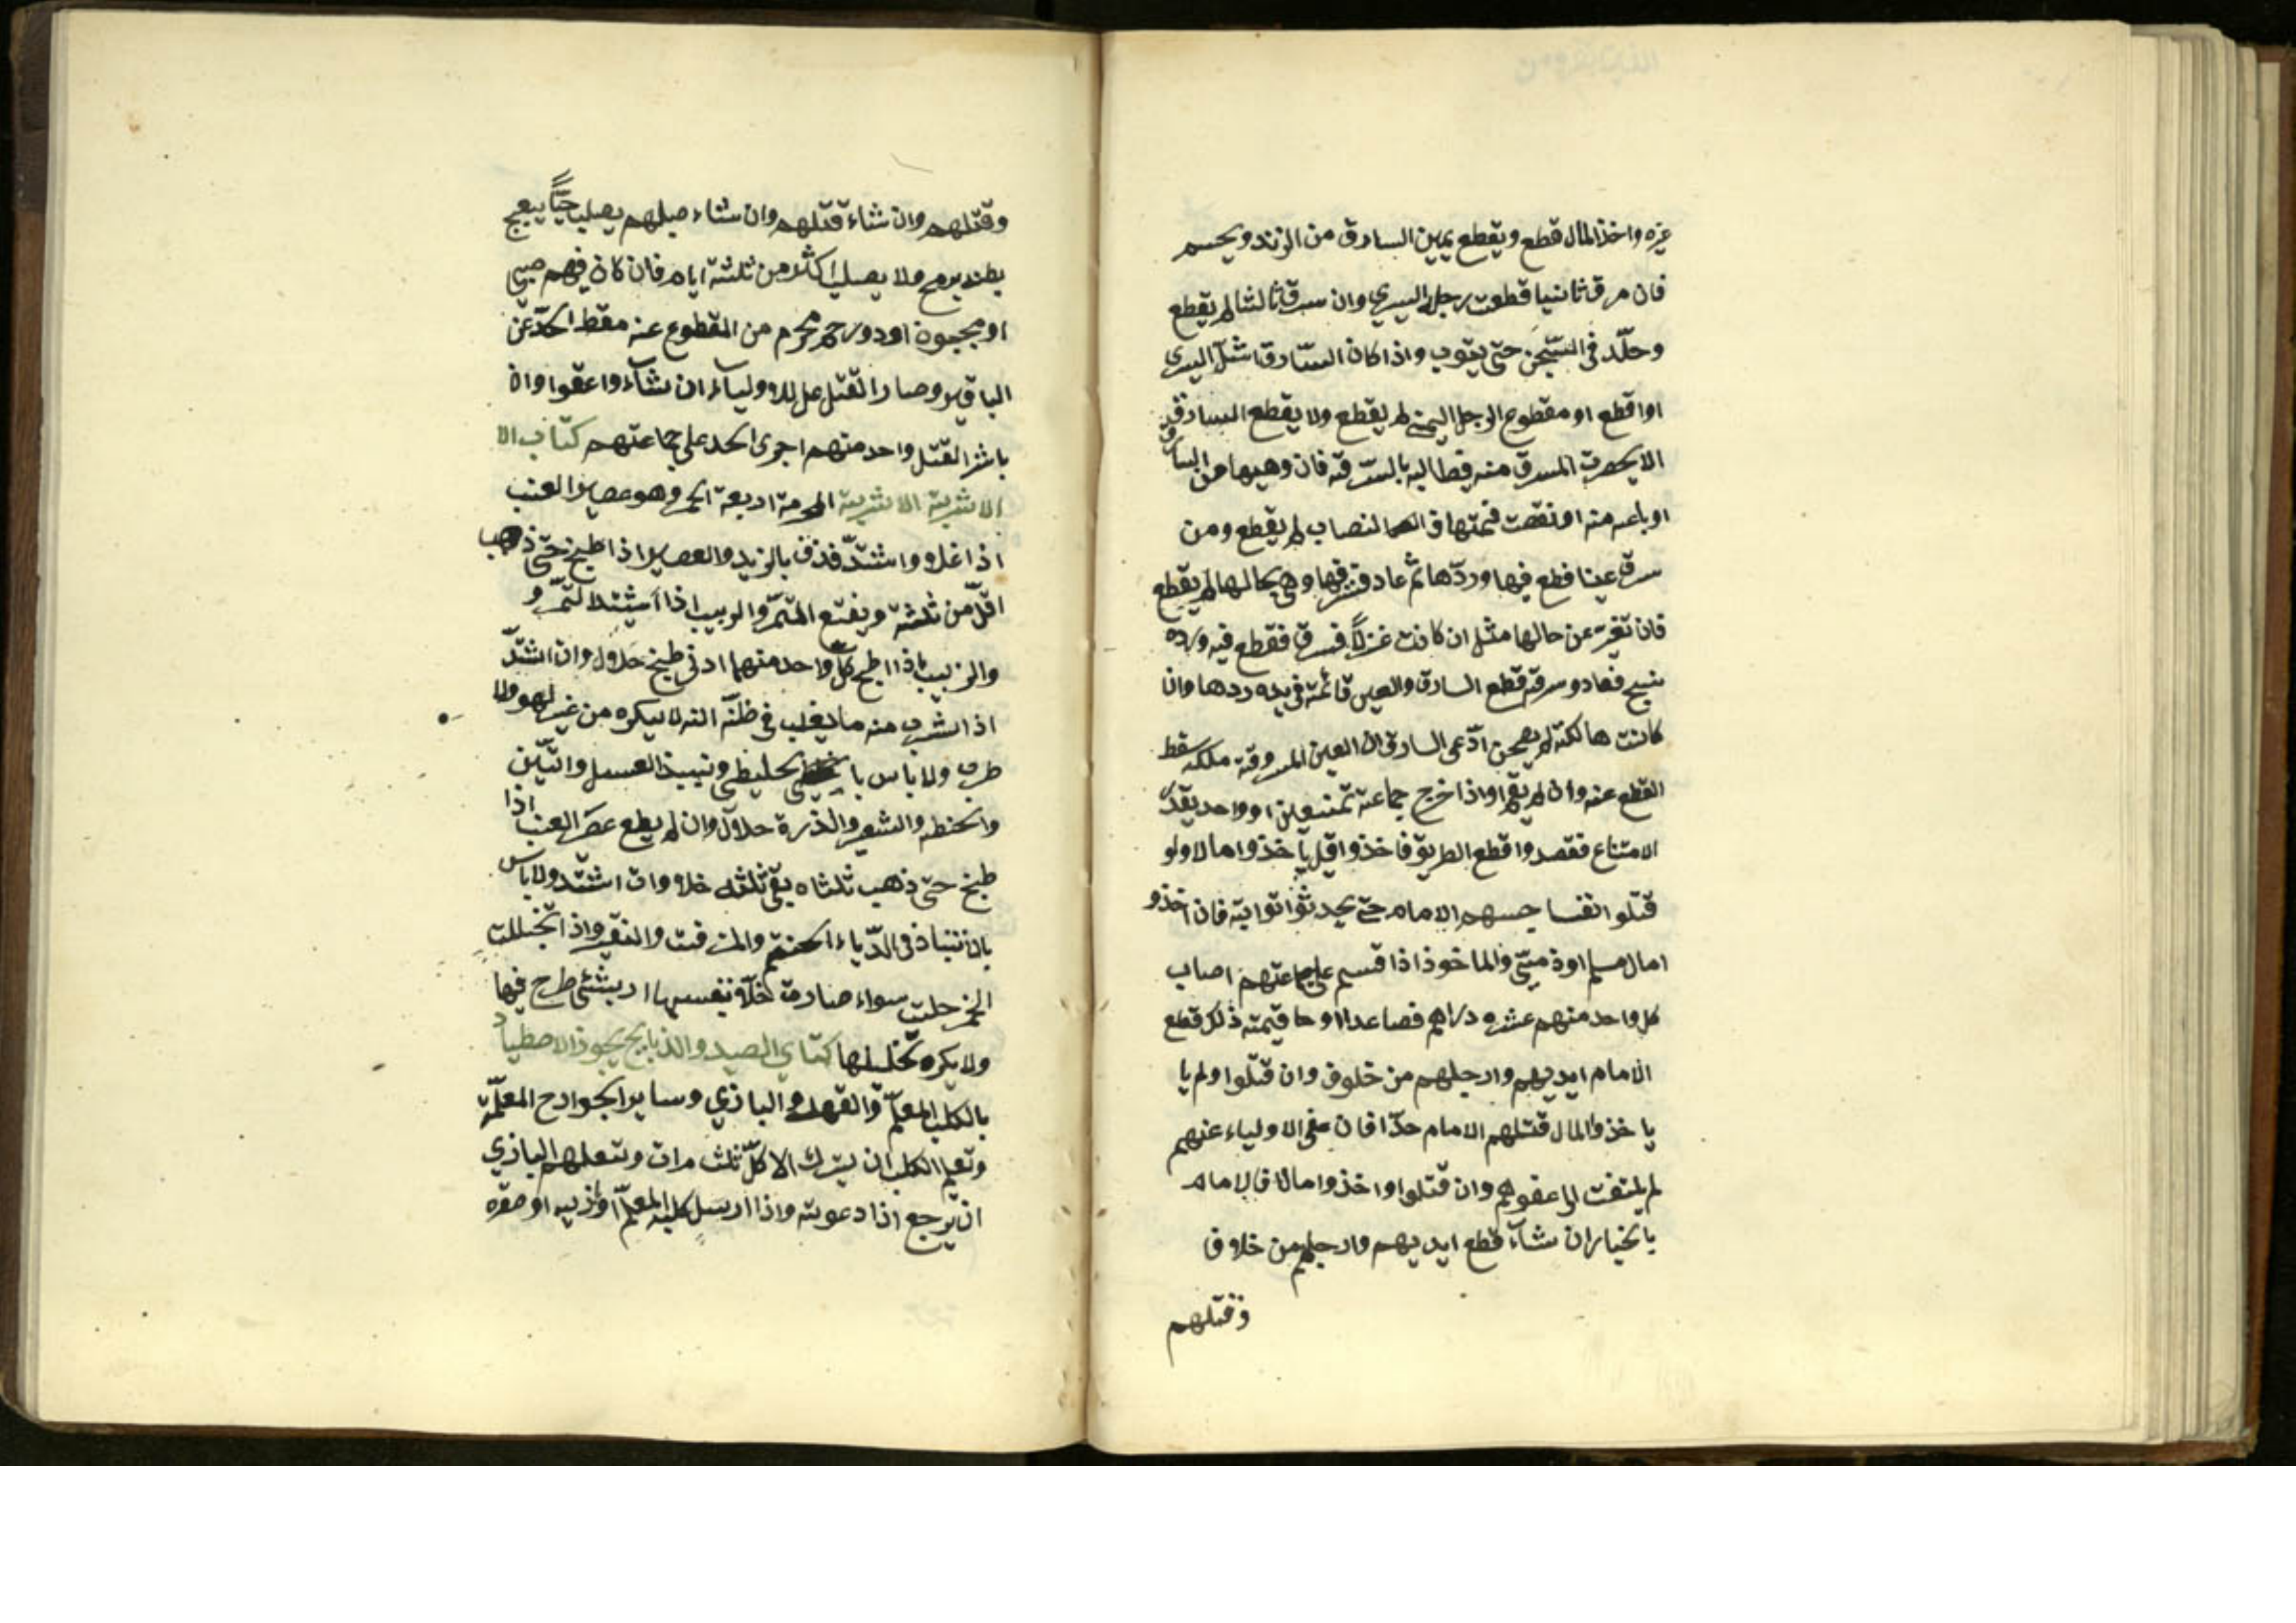 غيره واخذ المال قطع ويقطع يمين السارق من الزند ويحسم
فان سرق ثانيا قطعت رجله اليسري وان سرق ثالثا لم يقطع
وخلّد في السّجن حتّى يتوب واذا كان السّارق اشلّ اليسري
او اقطع او مقطوع الرجل اليمني لم يقطع ولا يقطع السارق
الا يحضرت المسرق منه فطاليه بالسّرقه فان وهبها من السارق
او باعه منه او نقصت قيمتها من النصاب لم يقطع ومن
سرق عينا فطع فيها وردّها ثمّ عاد فسرقها وهي بحالها لم يقطع
فان تغيّرت عن حالها مثل ان كانت غزلاً فسرق فقطع فيه ورده
نسج فعاد وسرقه قطع السارق والعين قائمة في يده ردها وان
كانت هالكة لم يضمن ادّعى السارق ان العين المسروقة ملكه سقط
القطع عنه وان لم يقم واذا خرج جماعة ممتنعين او واحد يقدر
الامتناع فقصدوا قطع الطريق فاخذوا قبل ياخذوا مالا ولو
قتلوا نفسا حبسهم الامام حتّى يحدثوا توابة فان اخذو
امال مسلم او ذميّ والماخوذ اذا قسم علي جماعتهم اصاب
كل واحد منهم عشره دراهم فصاعدا او ما قيمته ذلك قطع
الامام ايديهم وارجلهم من خلوف وان قتلوا ولم يا
ياخذوا المال قتلهم الامام حدّا فان عفى الاولياء عنهم
لم يلتفت الى عفوهم وان قتلوا واخذوا مالا فالامام
بالخيار ان شاء قطع ايديهم وارجلهم من خلاف
وقتلهم
وقتلهم وان شاء قتلهم وان شاء صلبهم يصلب حيّاً يبعج
بطنه برمح ولا يصلب اكثر من ثلثة ايام فان كان فيهم صبي
او مجنون او دو رحم محرم من المقطوع عنه سقط الحدّ عن
الباقين وصار القتل على للاولياء ان شاء واعفوا وان
باشر القتل واحد منهم اجرى الحد على جماعتهم كتاب الا
الاشربة الاشربة المحرمة اربعة الخمر وهو عصير العنب
اذا غلا واشتدّ فذف بالزبد والعصير اذا طبخ حتّى ذهب
اقلّ من ثلثة ونقيع التمّر والزبيب اذا اشتد التمر و
والزبيب اذا اطبخ كلّ واحد منهما ادني طبخ حلاول وان اشتدّ
اذا اشرب منه ما يغلب في ظنّه انّه لا يسكره من غير لهو ولا
طرب ولا باس با لخليطي ونبيذ العسل والتّين
والحنطه والشعير والذرة حلاول وان لم يطبع عصير العنب اذا
طبخ حتّى ذهب ثلثاه بقي ثلثه حلا وان اشتد ولا باس
بالانتباذ في الدّباء الحنتم والمزفت والنقير واذا تخللت
الخمر حلت سواء صارت خلّا بنفسها او بشئ طرح فيها
ولا يكره تخليلها كتاب الصيد والذبايح يجوز الاصطياد
بالكلب المعلّم والفهد والبازي وساير الجوارح المعلّمة
وتعليم الكلب ان يترك الاكل ثلث مرات وتعلهم البازي
ان يرجع اذا دعوته واذا ارسل كلبه المعلّم او بازيه او صقره